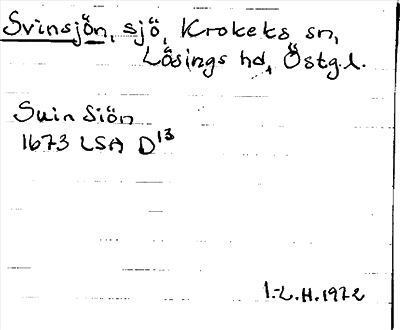 Svinsjön, sjö, Krokeks sn,
Lösings hd, Östg.l.
Suin Siön
1673 LSA D13
I.-L.H.1972